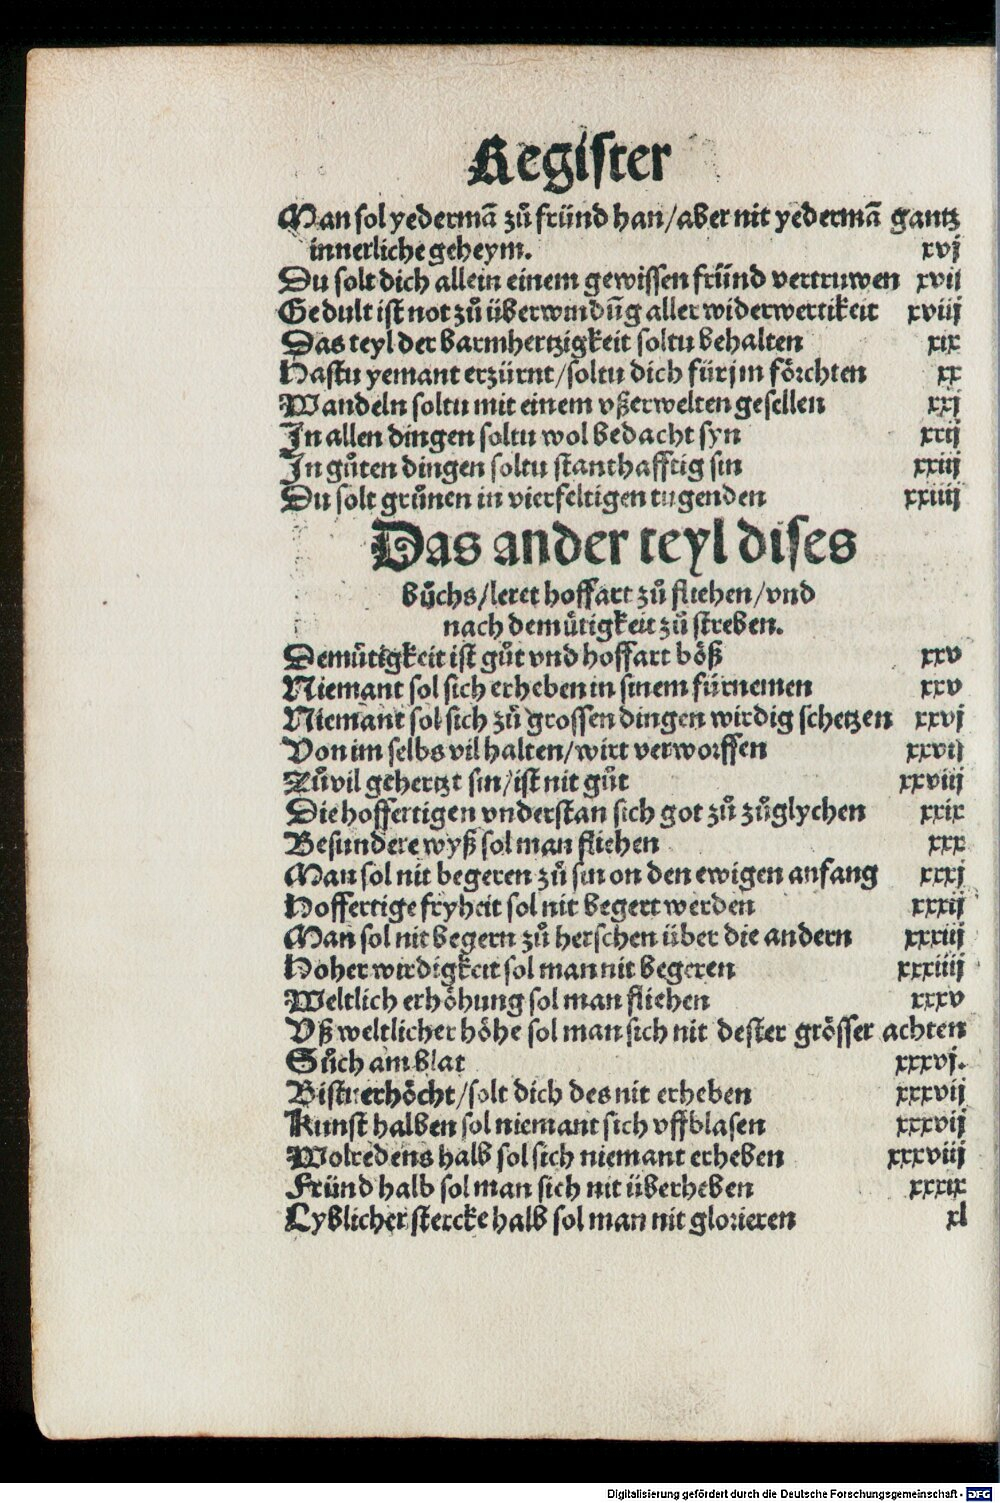 Register
Man sol yedermā zů fründ han/aber nit yedermā gantz
innerliche geheym. xvj
Du solt dich allein einem gewissen fründ vertruwen xvij
Gedult ist not zů überwindūg aller widerwertikeit xviij
Das teyl der barmhertzigkeit soltu behalten xix
Hastu yemant erzürnt/soltu dich für jm förchten xx
Wandeln soltu mit einem vßerwelten gesellen xxj
In allen dingen soltu wol bedacht syn xxij
In gůten dingen soltu stanthafftig sin xxiij
Du solt grůnen in vierfeltigen tugenden xxiiij
Das ander teyl dises
bůchs/leret hoffart zů fliehen/vnd
nach demůtigkeit zů streben.
Demůtigkeit ist gůt vnd hoffart böß xxv
Niemant sol sich erheben in sinem fürnemen xxv
Niemant sol sich zů grossen dingen wirdig schetzen xxvj
Von im selbs vil halten/wirt verworffen xxvij
Zůvil gehertzt sin/ist nit gůt xxviij
Die hoffertigen vnderstan sich got zů zůglychen xxix
Besundere wyß sol man fliehen xxx
Man sol nit begeren zů sin on den ewigen anfang xxxj
Hoffertige fryheit sol nit begert werden xxxij
Man sol nit begern zů herschen über die andern xxxiij
Hoher wirdigkeit sol man nit begeren xxxiiij
Weltlich erhöhung sol man fliehen xxxv
Vß weltlicher höhe sol man sich nit dester grösser achten
Sůch am blat xxxvj.
Bistu erhöcht/solt dich des nit erheben xxxvij
Kunst halben sol niemant sich vffblasen xxxvij
Wolredens halb sol sich niemant erheben xxxviij
Fründ halb sol man sich nit überheben xxxix
Lyblicher stercke halb sol man nit glorieren xl
Digitalisierung gefördert durch die Deutsche Forschungsgemeinschaft - DFG